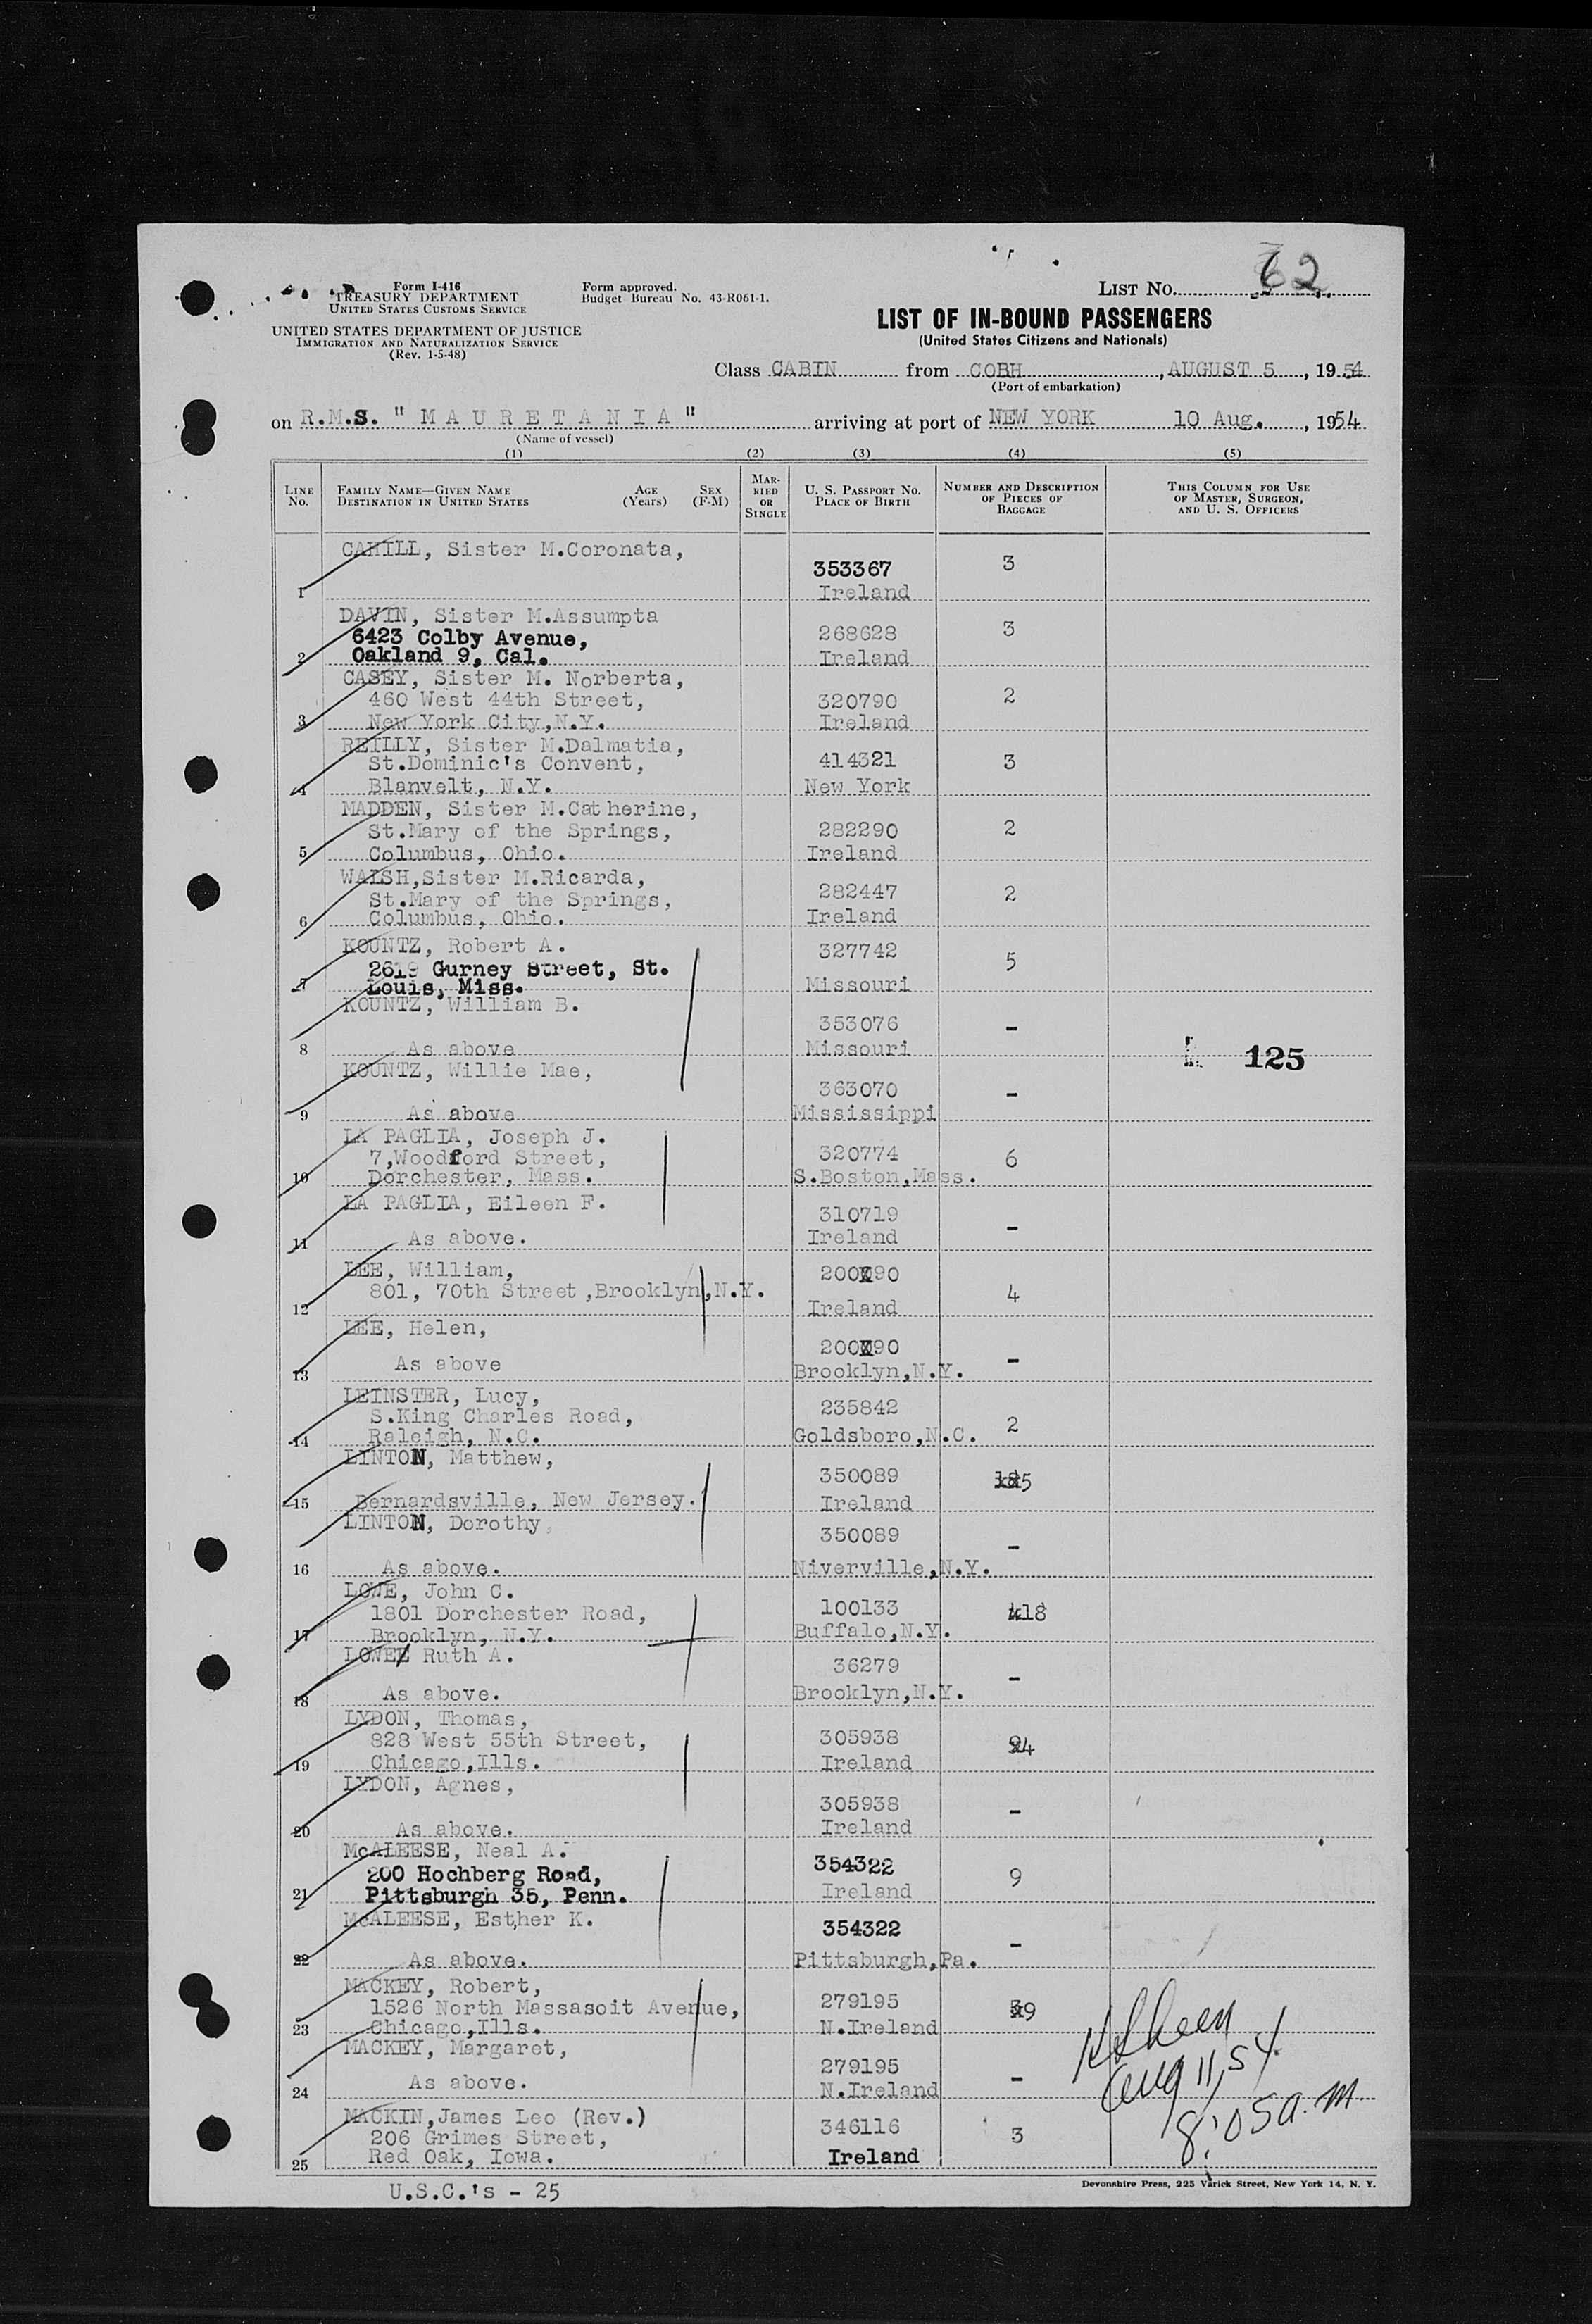 Form I-416
TREASURY DEPARTMENT
UNITED STATES CUSTOMS SERVICE
UNITED STATES DEPARTMENT OF JUSTICE
IMMIGRATION AND NATURALIZATION SERVICE
(Rev. 1-5-48)
Form approved.
Budget Bureau No. 43-R061-1.
LIST No. 62
LIST OF IN-BOUND PASSENGERS
(United States Citizens and Nationals)
Class CABIN from COBH, AUGUST 5, 1954
(Port of embarkation)
on R.M.S. "MAURETANIA" arriving at port of NEW YORK 10 Aug., 1954
(Name of vessel)
(1) (2) (3) (4) (5)
LINE No.
FAMILY NAME—GIVEN NAME
DESTINATION IN UNITED STATES
AGE (Years)
SEX (F-M)
MARRIED OR SINGLE
U. S. PASSPORT NO.
PLACE OF BIRTH
NUMBER AND DESCRIPTION OF PIECES OF BAGGAGE
THIS COLUMN FOR USE OF MASTER, SURGEON, AND U. S. OFFICERS
CAHILL, Sister M.Coronata,
353367 3
1 Ireland
DAVIN, Sister M.Assumpta
6423 Colby Avenue, 268628 3
2 Oakland 9, Cal. Ireland
CASEY, Sister M. Norberta,
460 West 44th Street, 320790 2
3 New York City,N.Y. Ireland
REILLY, Sister M.Dalmatia,
St.Dominic's Convent, 414321 3
4 Blanvelt, N.Y. New York
MADDEN, Sister M.Catherine,
St.Mary of the Springs, 282290 2
5 Columbus, Ohio. Ireland
WALSH,Sister M.Ricarda,
St.Mary of the Springs, 282447 2
6 Columbus, Ohio. Ireland
KOUNTZ, Robert A. 327742
2619 Gurney Street, St. 5
7 Louis, Miss. Missouri
KOUNTZ, William B.
353076 -
8 As above Missouri
125
KOUNTZ, Willie Mae,
363070 -
9 As above Mississippi
LA PAGLIA, Joseph J.
7,Woodford Street, 320774 6
10 Dorchester, Mass. S.Boston,Mass.
LA PAGLIA, Eileen F.
310719 -
11 As above. Ireland
LEE, William, 200090
801, 70th Street,Brooklyn,N.Y. 4
12 Ireland
LEE, Helen,
200090 -
13 As above Brooklyn,N.Y.
LEINSTER, Lucy,
S.King Charles Road, 235842 2
14 Raleigh, N.C. Goldsboro,N.C.
LINTON, Matthew,
350089 5
15 Bernardsville, New Jersey. Ireland
LINTON, Dorothy
350089 -
16 As above. Niverville,N.Y.
LOWE, John C.
1801 Dorchester Road, 100133 18
17 Brooklyn, N.Y. Buffalo,N.Y.
LOWE, Ruth A.
36279 -
18 As above. Brooklyn,N.Y.
LYDON, Thomas,
828 West 55th Street, 305938 4
19 Chicago,Ills. Ireland
LYDON, Agnes,
305938 -
20 As above. Ireland
McALEESE, Neal A.
200 Hochberg Road, 354322 9
21 Pittsburgh 35, Penn. Ireland
McALEESE, Esther K.
354322 -
22 As above. Pittsburgh,Pa.
MACKEY, Robert,
1526 North Massasoit Avenue, 279195 9
23 Chicago,Ills. N.Ireland
MACKEY, Margaret,
279195 -
24 As above. N.Ireland
Aug 11, 54
8:05 a.m
MACKIN,James Leo (Rev.)
206 Grimes Street, 346116 3
25 Red Oak, Iowa. Ireland
U.S.C.'s - 25
Devonshire Press, 225 Varick Street, New York 14, N. Y.